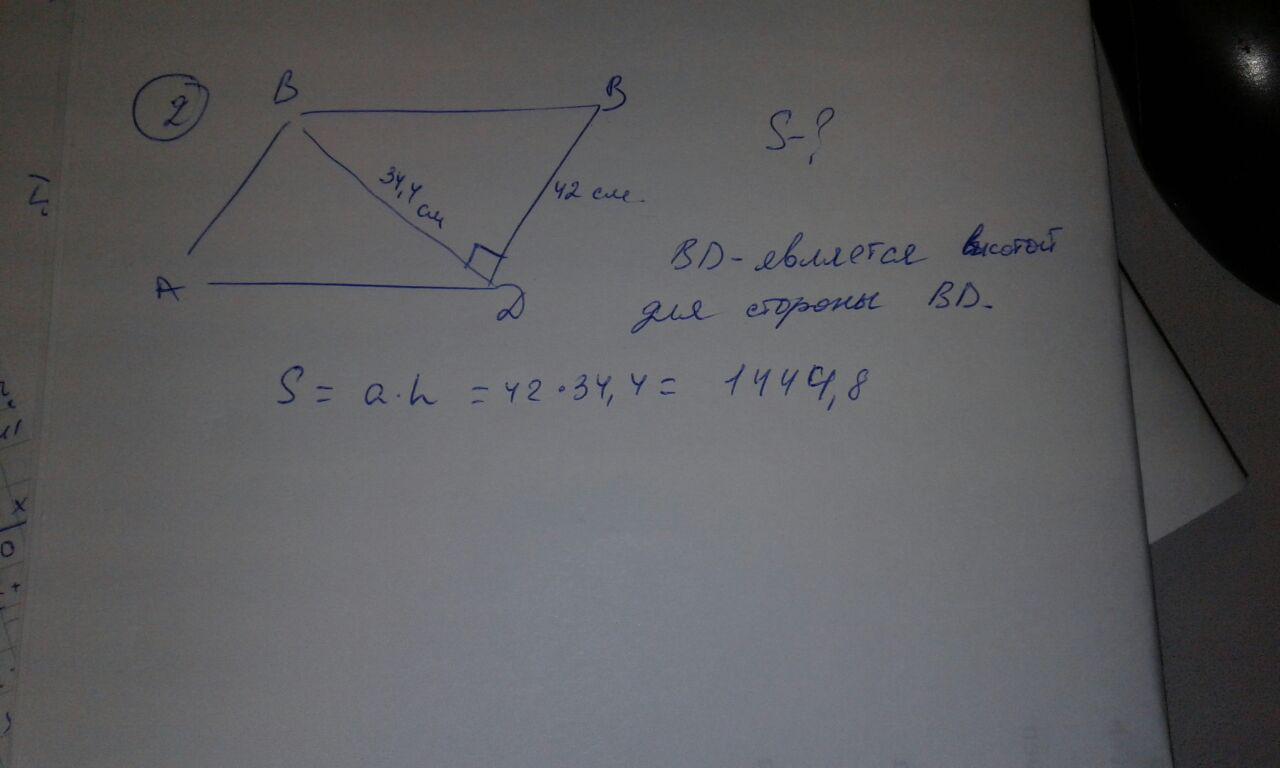 2
B
B
S-?
34,4 см
42 см.
A
D
BD - является высотой
для стороны BD.
S = a·h = 42·34,4 = 1444,8